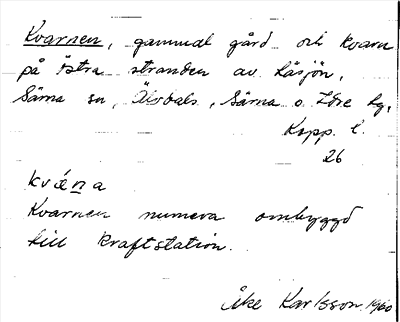 Kvarnen, gammal gård och kvarn
på östra stranden av Låsjön,
Särna sn, Älvdals, Särna o. Idre hg.
Kopp. l.
26
kvǽna
Kvarnen numera ombyggd
till kraftstation.
Åke Karlsson. 1960